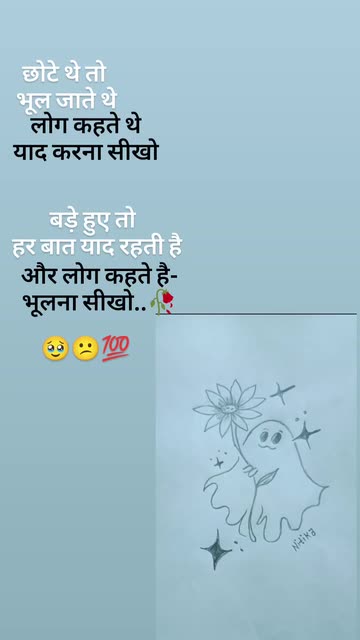 छोटे थे तो
भूल जाते थे
लोग कहते थे
याद करना सीखो
बड़े हुए तो
हर बात याद रहती है
और लोग कहते है-
भूलना सीखो..🥀
🥹😕💯
Nitika